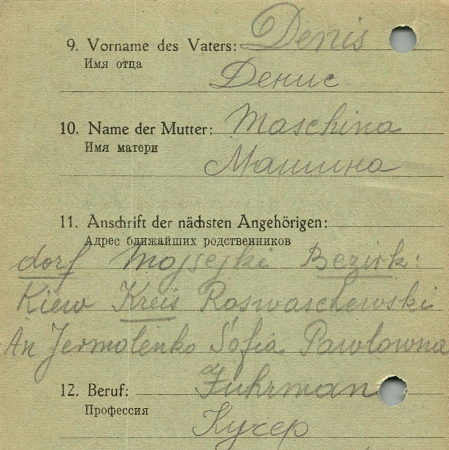 9. Vorname des Vaters: Denis
Имя отца
Денис
10. Name der Mutter: Maschina
Имя матери
Машина
11. Anschrift der nächsten Angehörigen:
Адрес ближайших родственников
dorf Mojsejki Bezirk:
Kiew Kreis Roswaschewski
An Jermolenko Sofia Pawlowna
12. Beruf: Fuhrman
Профессия
Кучер